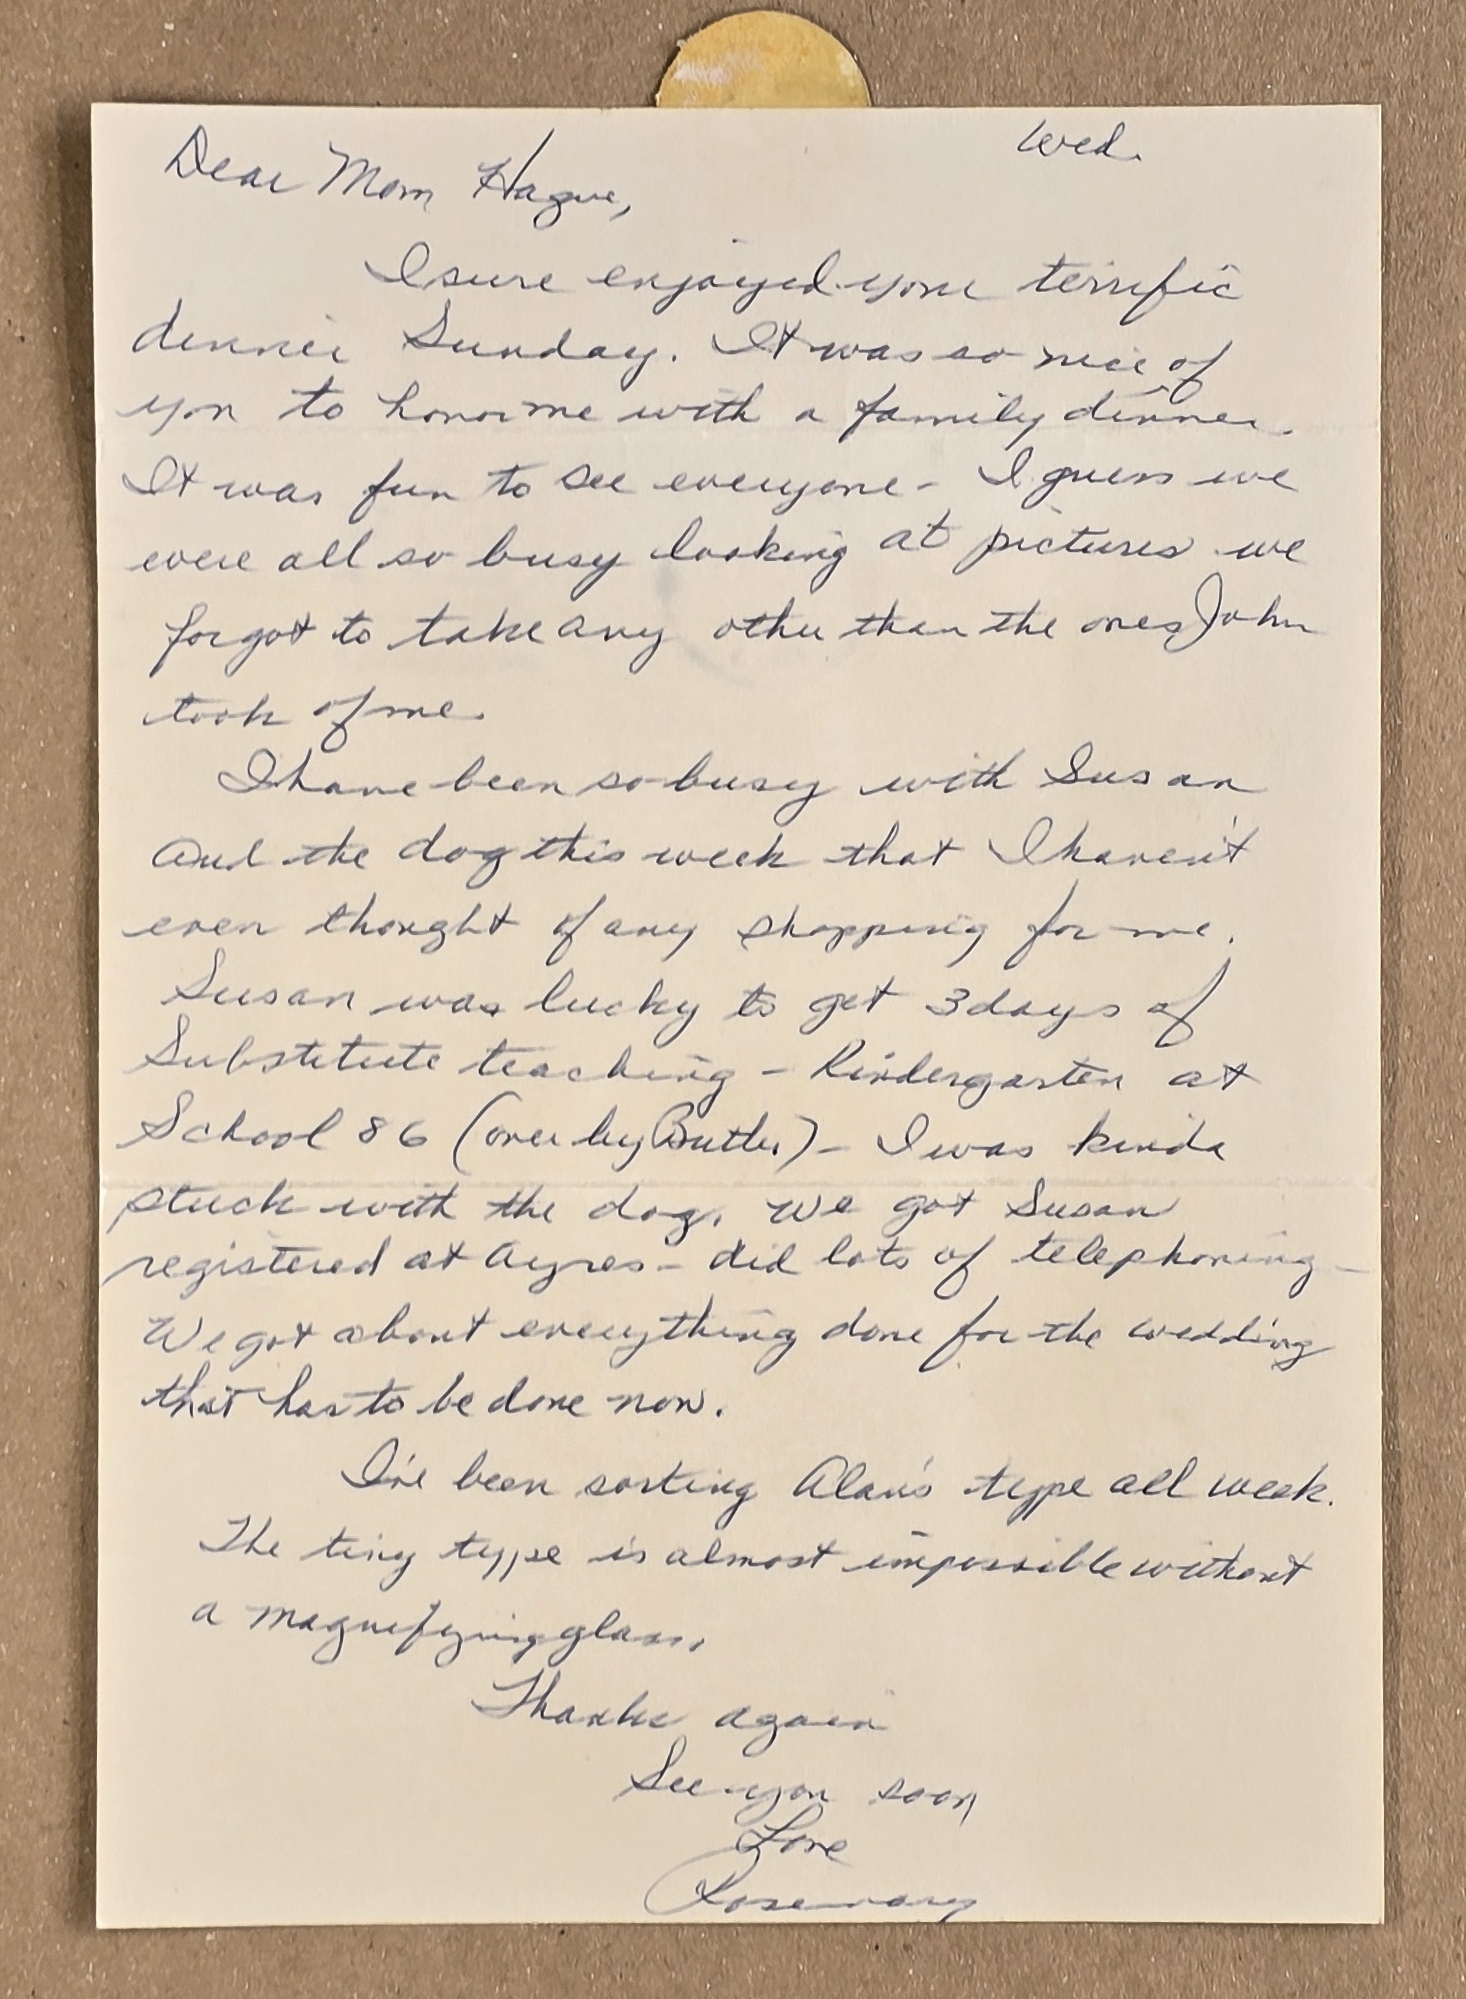 Wed.
Dear Mom Hague,
I sure enjoyed your terrific
dinner Sunday. It was so nice of
you to honor me with a family dinner.
It was fun to see everyone - I guess we
were all so busy looking at pictures we
forgot to take any other than the ones John
took of me.
I have been so busy with Susan
and the dog this week that I haven't
even thought of any shopping for me.
Susan was lucky to get 3 days of
Substitute teaching - Kindergarten at
School 86 (over by Butler) - I was kinda
stuck with the dog. We got Susan
registered at Ayres - did lots of telephoning -
We got about everything done for the wedding
that has to be done now.
I've been sorting Alan's type all week.
The tiny type is almost impossible without
a magnifying glass.
Thanks again
See you soon
Love
Rosemary